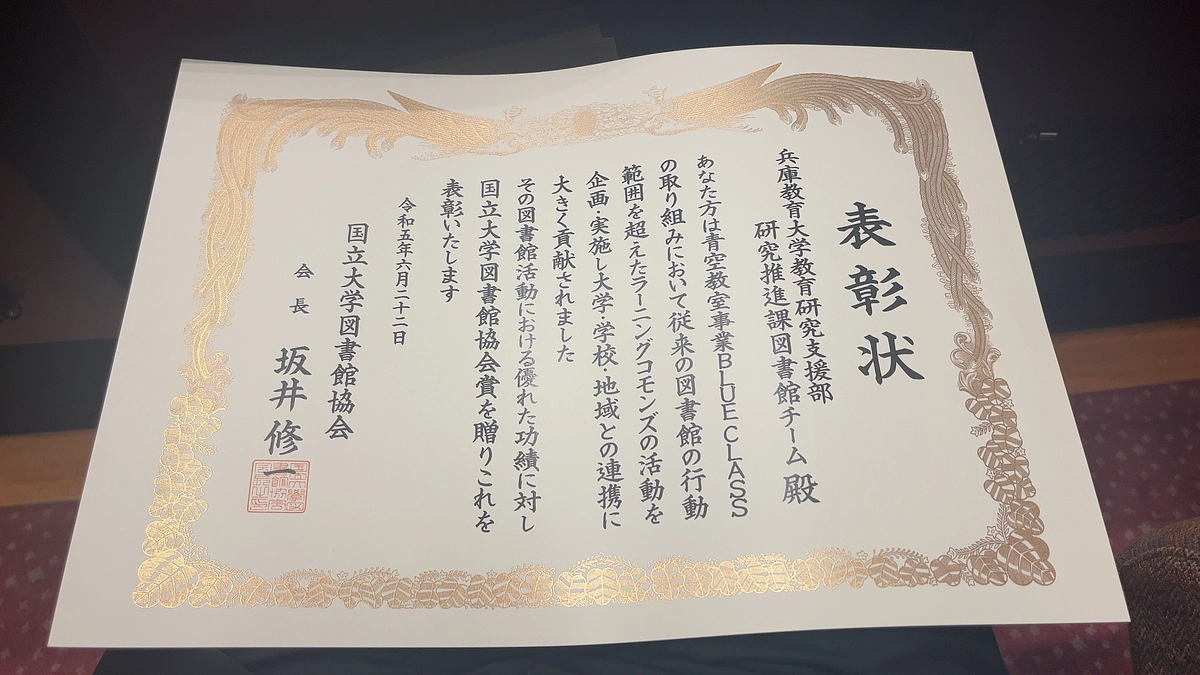 表彰状
兵庫教育大学教育研究支援部
研究推進課図書館チーム 殿
あなた方は青空教室事業BLUE CLASS
の取り組みにおいて従来の図書館の行動
範囲を超えたラーニングコモンズの活動を
企画・実施し大学・学校・地域との連携に
大きく貢献されました
その図書館活動における優れた功績に対し
国立大学図書館協会賞を贈りこれを
表彰いたします
令和五年六月二十二日
国立大学図書館協会
会長 坂井修一